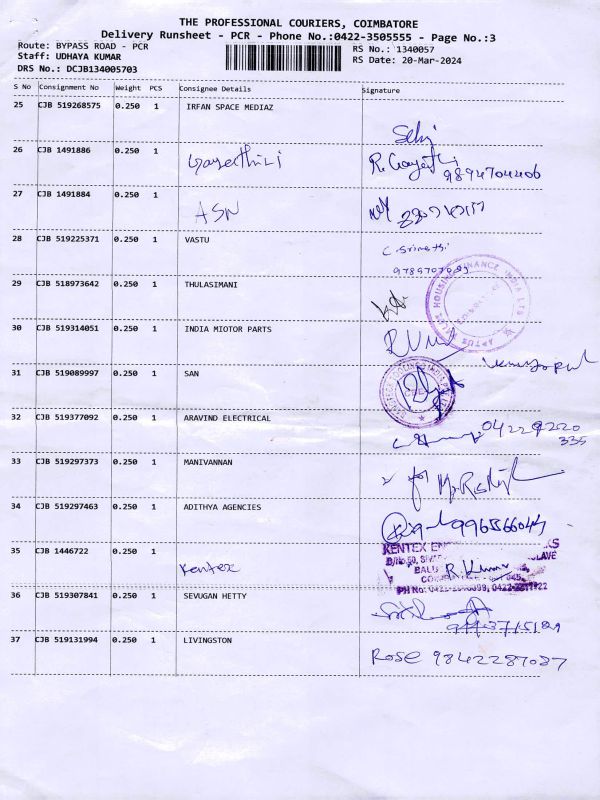 THE PROFESSIONAL COURIERS, COIMBATORE
Delivery Runsheet - PCR - Phone No.:0422-3505555 - Page No.:3
Route: BYPASS ROAD - PCR
Staff: UDHAYA KUMAR
DRS No.: DCJB134005703
RS No.: 1340057
RS Date: 20-Mar-2024
S No Consignment No Weight PCS Consignee Details Signature
25 CJB 519268575 0.250 1 IRFAN SPACE MEDIAZ
26 CJB 1491886 0.250 1 Gayeethiri R. Gayathri 9894704406
27 CJB 1491884 0.250 1 ASN
28 CJB 519225371 0.250 1 VASTU C. Srimathi
29 CJB 518973642 0.250 1 THULASIMANI
APTUS VALUE HOUSING FINANCE INDIA LTD
30 CJB 519314051 0.250 1 INDIA MIOTOR PARTS
31 CJB 519089997 0.250 1 SAN Venugopal
32 CJB 519377092 0.250 1 ARAVIND ELECTRICAL
33 CJB 519297373 0.250 1 MANIVANNAN for
34 CJB 519297463 0.250 1 ADITHYA AGENCIES
35 CJB 1446722 0.250 1 Kentex R. Kumar
KENTEX
36 CJB 519307841 0.250 1 SEVUGAN HETTY
37 CJB 519131994 0.250 1 LIVINGSTON Rose 9842287087